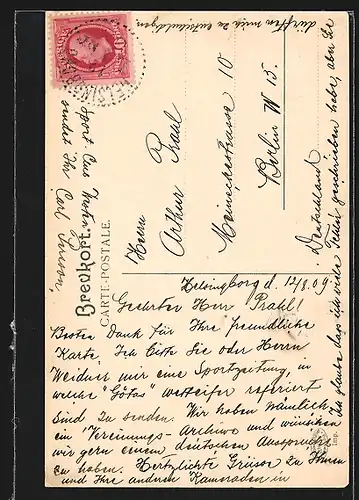 Brevkort.
CARTE-POSTALE.
HELSINGBORG
Herrn
Arthur Prahl
Meineckestrasse 10
Berlin W 15.
Deutschland
Helsingborg d. 12/8.09.
Geehrter Herr Prahl!
Besten Dank für Ihre freundliche
Karte. Ich bitte Sie oder Herrn
Weidner mir eine Sportzeitung, in
welche "Götas" wetteifer referiert
sind zu senden. Wir haben nämlich
ein Vereinungs-Archive und wünschen
wir gern einem deutschen Aussprache
zu haben. Hertzlichste Grüsse zu Ihnen
und Ihre anderen Kameraden in
Sport aus
sendet Ihr Carl
Ich glaube dass ich viele Fehler geschrieben habe, aber Sie
dürften mich zu entschuldigen